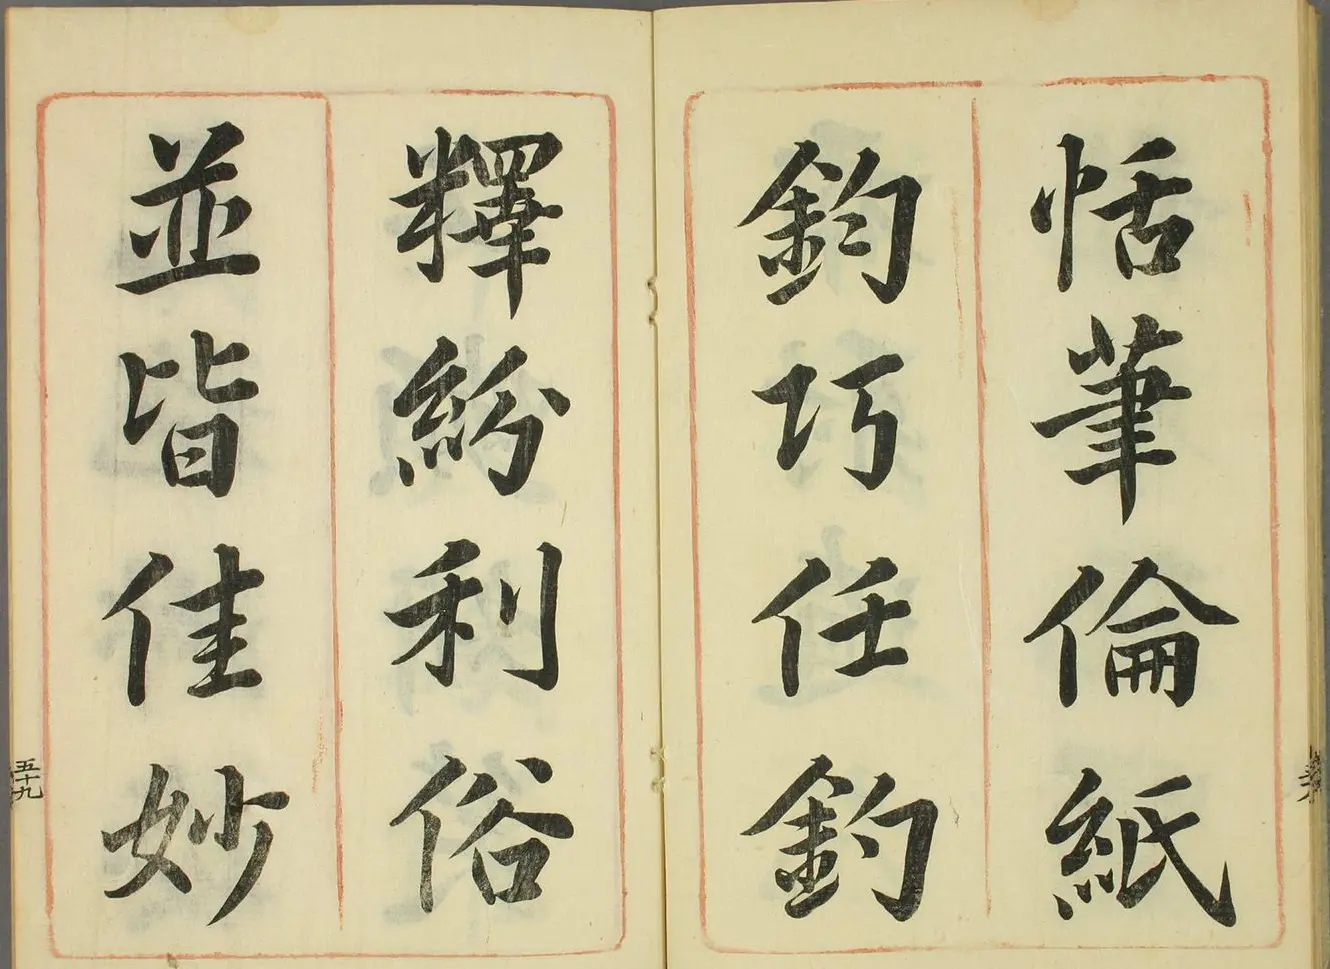 恬筆倫紙
鈞巧任釣
釋紛利俗
並皆佳妙
五十九